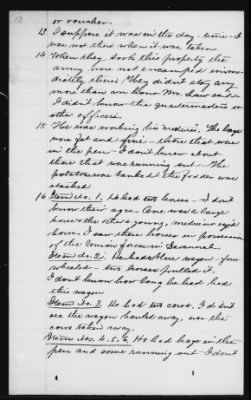 or voucher.
13 I suppose it was in the day-time - I
was not there when it was taken
14 When they took this property the
army were not encamped imme-
diately there. They did not stay any
more than one hour. Mr. Shaw said
I didn't know the quartermaster or
other officers.
15 He was working his
The hogs
was fat and fine - those that was
in the pen - I don't know about
those that was running out - The
potatoes was banked the fodder was
stacked
16 Item No. 1. He had two horses - I don't
know their age - One was a large
horse & the other a young, medium sized
horse. I saw these horses in possession
of the Union forces in Savannah.
Item No. 2. He had a blue wagon - four
wheeled - two horses pulled it.
I don't know how long he had had
this wagon
Item No. 3 He had two cows. I didn't
see the wagon hauled away, nor the
cows taken away.
Items Nos. 4. 5. 6. He had hogs in the
pen and some running out I don't